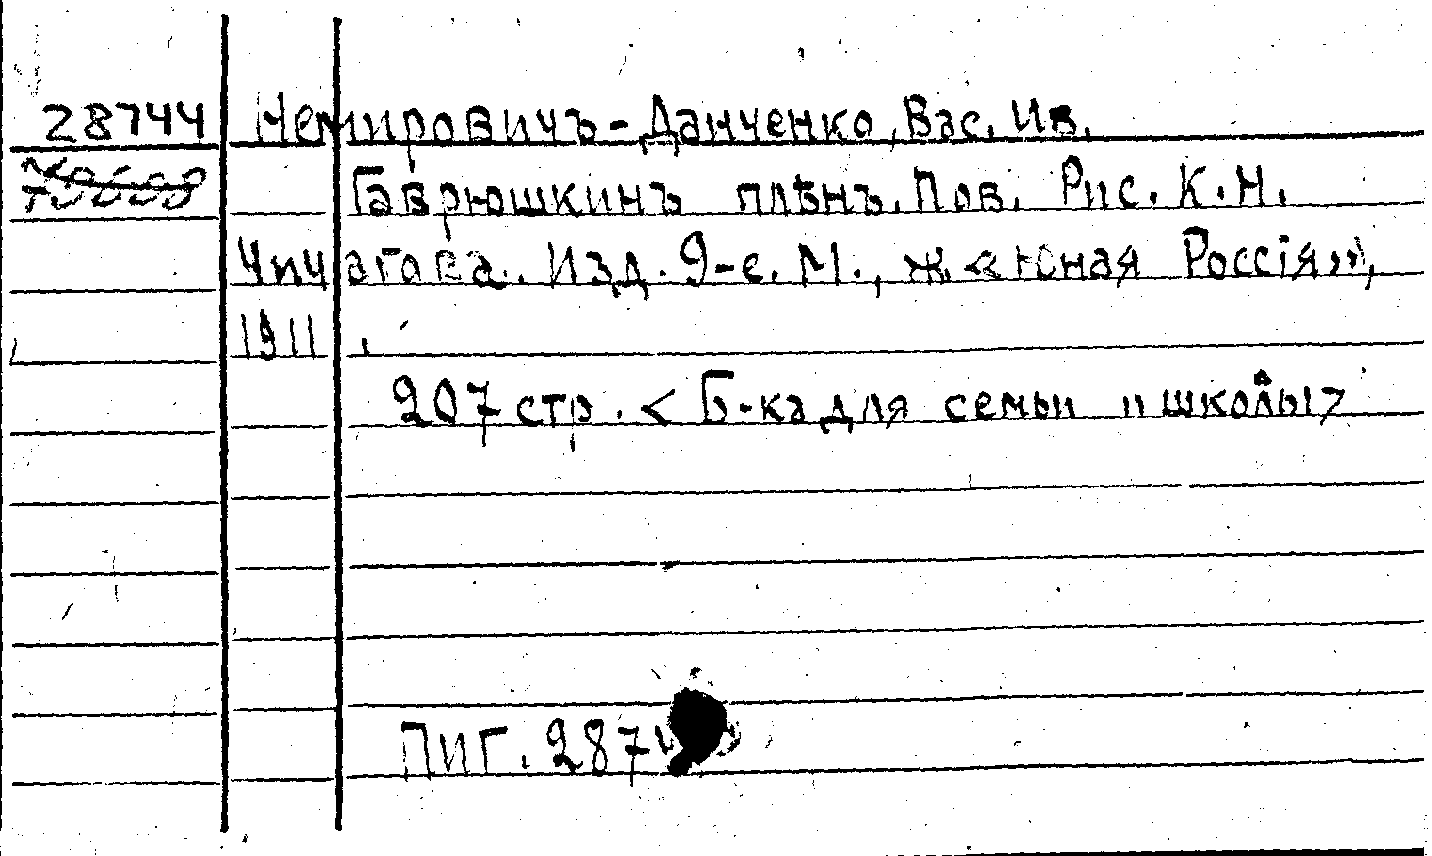 28744 Немировичъ-Данченко, Вас. Ив.
Гаврюшкинъ плѣнъ. Пов. Рис. К.Н.
Чичагова. Изд. 9-е. М., ж. «Юная Россія»,
1911.
207 стр. < Б-ка для семьи и школы >
ПИГ.